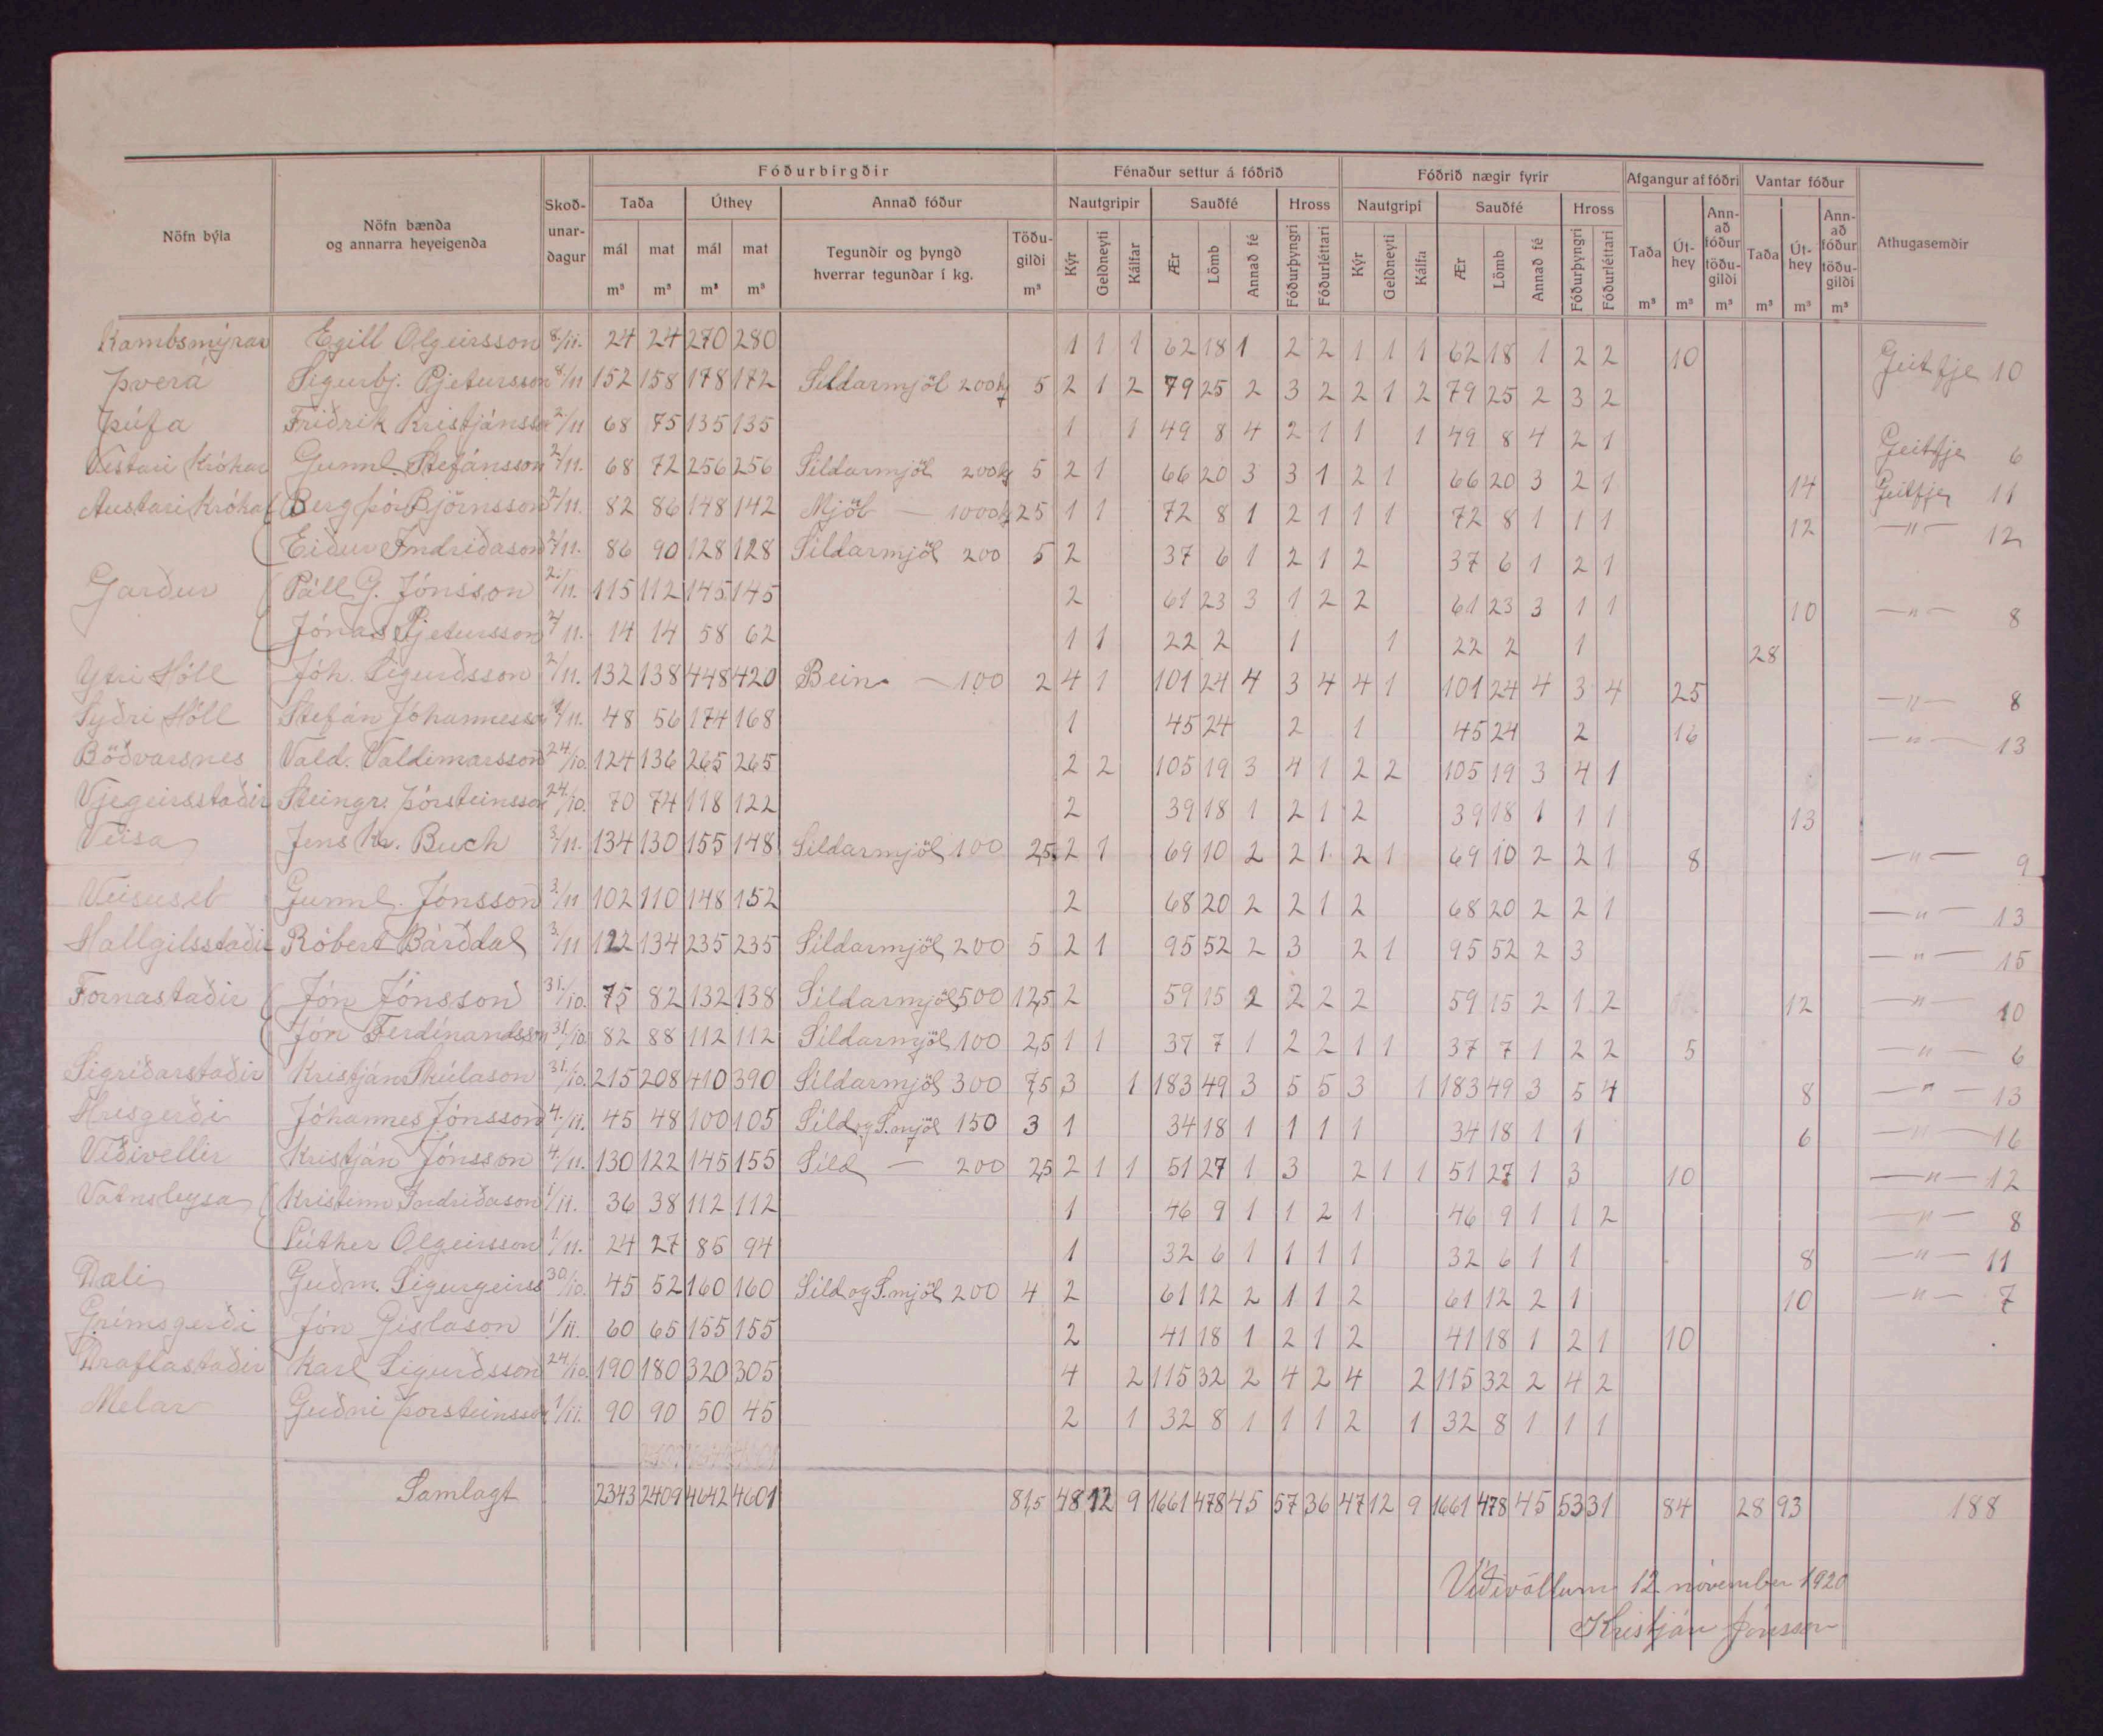 Fóðurbirgðir Fénaður settur á fóðrið Fóðrið nægir fyrir Afgangur af fóðri Vantar fóður
Nöfn býla Nöfn bænda og annarra heyeigenda Skoð-unar-dagur Taða Úthey Annað fóður Nautgripir Sauðfé Hross Nautgripi Sauðfé Hross Taða Út-hey Ann-að fóður töðu-gildi Taða Út-hey Ann-að fóður töðu-gildi Athugasemdir
mál mat mál mat Tegundir og þyngd hverrar tegundar í kg. Töðu-gildi Kýr Geldneyti Kálfar Ær Lömb Annað fé Fóðurþyngri Fóðurléttari Kýr Geldneyti Kálfa Ær Lömb Annað fé Fóðurþyngri Fóðurléttari
m³ m³ m³ m³ m³ m³ m³ m³ m³ m³ m³
Kambsmýrar Egill Olgeirsson 8/11. 24 24 270 280 1 1 1 62 18 1 2 2 1 1 1 62 18 1 2 2 10 Geitfje 10
Þverá Sigurbj. Pjetursson 8/11 152 158 178 172 Síldarmjöl 200 kg 5 2 1 2 79 25 2 3 2 2 1 2 79 25 2 3 2
Þúfa Friðrik Kristjánsson 2/11 68 75 135 135 1 1 49 8 4 2 1 1 1 49 8 4 2 1 Geitfje 6
Vestari Krókar Gunnl. Stefánsson 2/11. 68 72 256 256 Síldarmjöl 200 kg 5 2 1 66 20 3 3 1 2 1 66 20 3 2 1 14 Geitfje 11
Austari Krókar Bergþór Björnsson 2/11. 82 86 148 142 Mjöl — 1000 kg 25 1 1 72 8 1 2 1 1 1 72 8 1 1 1 12 —"— 12
Eiður Indriðason 2/11. 86 90 128 128 Síldarmjöl 200 5 2 37 6 1 2 1 2 37 6 1 2 1
Garður Páll G. Jónsson 2/11. 115 112 145 145 2 61 23 3 1 2 2 61 23 3 1 1 10 —"— 8
Jónas Pjetursson 2/11. 14 14 58 62 1 1 22 2 1 1 22 2 1 28
Ytri Hóll Jóh. Sigurðsson 2/11. 132 138 448 420 Bein — 100 2 4 1 101 24 4 3 4 4 1 101 24 4 3 4 25 —"— 8
Syðri Hóll Stefán Jóhannesson /11. 48 56 174 168 1 45 24 2 1 45 24 2 16 —"— 13
Böðvarsnes Vald. Valdimarsson 24/10. 124 136 265 265 2 2 105 19 3 4 1 2 2 105 19 3 4 1
Vjegeirsstaðir Steingr. Þórsteinsson 24/10. 70 74 118 122 2 39 18 1 2 1 2 39 18 1 1 1 13
Veisa Jens Kr. Buch 3/11. 134 130 155 148 Síldarmjöl 100 2,5 2 1 69 10 2 2 1 2 1 69 10 2 2 1 8 —"— 9
Veisusel Gunnl. Jónsson 3/11 102 110 148 152 2 68 20 2 2 1 2 68 20 2 2 1 —"— 13
Hallgilsstaðir Róbert Bárðdal 3/11 122 134 235 235 Síldarmjöl 200 5 2 1 95 52 2 3 2 1 95 52 2 3 —"— 15
Fornastaðir Jón Jónsson 31./10. 75 82 132 138 Síldarmjöl 500 12,5 2 59 15 2 2 2 2 59 15 2 1 2 12 —"— 10
Jón Ferdínandsson 31/10 82 88 112 112 Síldarmjöl 100 2,5 1 1 37 7 1 2 2 1 1 37 7 1 2 2 5 —"— 6
Sigríðarstaðir Kristján Skúlason 31./10. 215 208 410 390 Síldarmjöl 300 7,5 3 1 183 49 3 5 5 3 1 183 49 3 5 4 8 —"— 13
Hrísgerði Jóhannes Jónsson 4/11. 45 48 100 105 Síld og S.mjöl 150 3 1 34 18 1 1 1 1 34 18 1 1 6 —"— 16
Víðivellir Kristján Jónsson 4/11. 130 122 145 155 Síld — 200 2,5 2 1 1 51 27 1 3 2 1 1 51 27 1 3 10 —"— 12
Vatnsleysa Kristinn Indriðason 1/11. 36 38 112 112 1 46 9 1 1 2 1 46 9 1 1 2 —"— 8
Lúther Olgeirsson 1/11. 24 27 85 94 1 32 6 1 1 1 1 32 6 1 1 8 —"— 11
Dæli Guðm. Sigurgeirss 30/10. 45 52 160 160 Síld og S.mjöl 200 4 2 61 12 2 1 1 2 61 12 2 1 10 —"— 7
Grímsgerði Jón Gíslason 1/11. 60 65 155 155 2 41 18 1 2 1 2 41 18 1 2 1 10
Draflastaðir Karl Sigurðsson 24/10. 190 180 320 305 4 2 115 32 2 4 2 4 2 115 32 2 4 2
Melar Guðni Þorsteinsson 1/11. 90 90 50 45 2 1 32 8 1 1 1 2 1 32 8 1 1 1
Samlagt 2343 2409 4642 4601 81,5 48 12 9 1661 478 45 57 36 47 12 9 1661 478 45 53 31 84 28 93 188
Víðivöllum 12 nóvember 1920
Kristján Jónsson